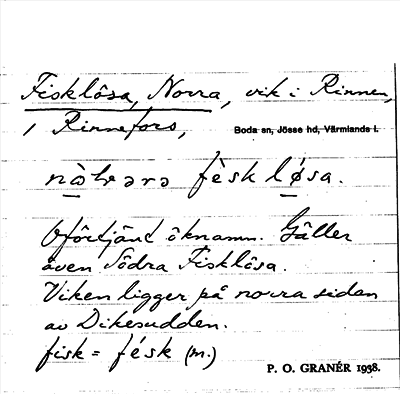 Fisklösa, Norra, vik i Rinnen,
i Rinnefors, Boda sn, Jösse hd, Värmlands l.
fèsk lǿsa.
Oförtjänt öknamn. Gäller
även Södra Fisklösa.
Viken ligger på norra sidan
av Dikesudden.
fisk = fésk (m.)
P. O. GRANÉR 1938.